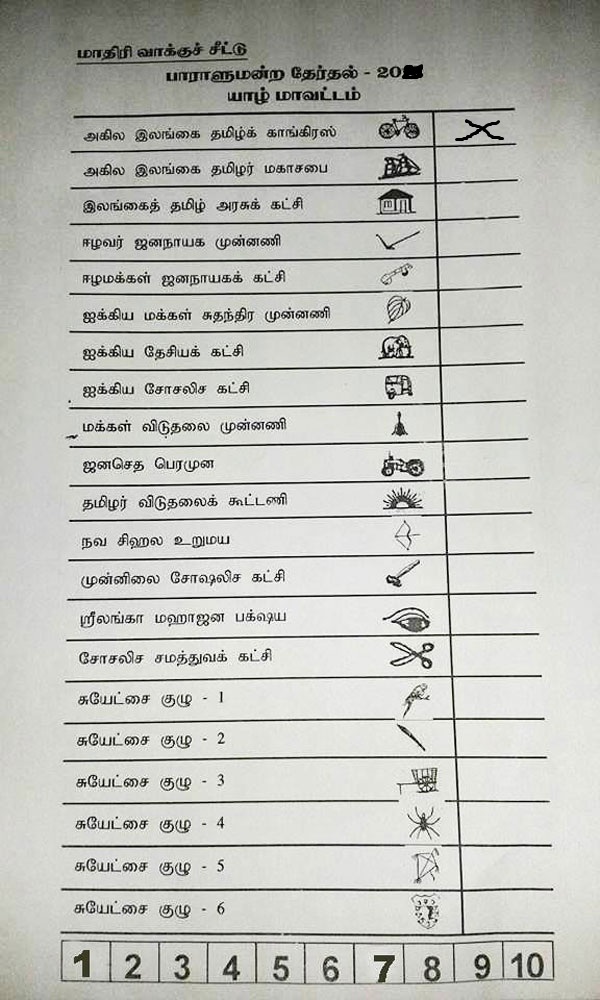 மாதிரி வாக்குச் சீட்டு
பாராளுமன்ற தேர்தல் - 20
யாழ் மாவட்டம்
அகில இலங்கை தமிழ்க் காங்கிரஸ் X
அகில இலங்கை தமிழர் மகாசபை
இலங்கைத் தமிழ் அரசுக் கட்சி
ஈழவர் ஜனநாயக முன்னணி
ஈழமக்கள் ஜனநாயகக் கட்சி
ஐக்கிய மக்கள் சுதந்திர முன்னணி
ஐக்கிய தேசியக் கட்சி
ஐக்கிய சோசலிச கட்சி
மக்கள் விடுதலை முன்னணி
ஜனசெத பெரமுன
தமிழர் விடுதலைக் கூட்டணி
நவ சிஹல உறுமய
முன்னிலை சோஷலிச கட்சி
ஸ்ரீலங்கா மஹாஜன பக்ஷய
சோசலிச சமத்துவக் கட்சி
சுயேட்சை குழு - 1
சுயேட்சை குழு - 2
சுயேட்சை குழு - 3
சுயேட்சை குழு - 4
சுயேட்சை குழு - 5
சுயேட்சை குழு - 6
1 2 3 4 5 6 7 8 9 10